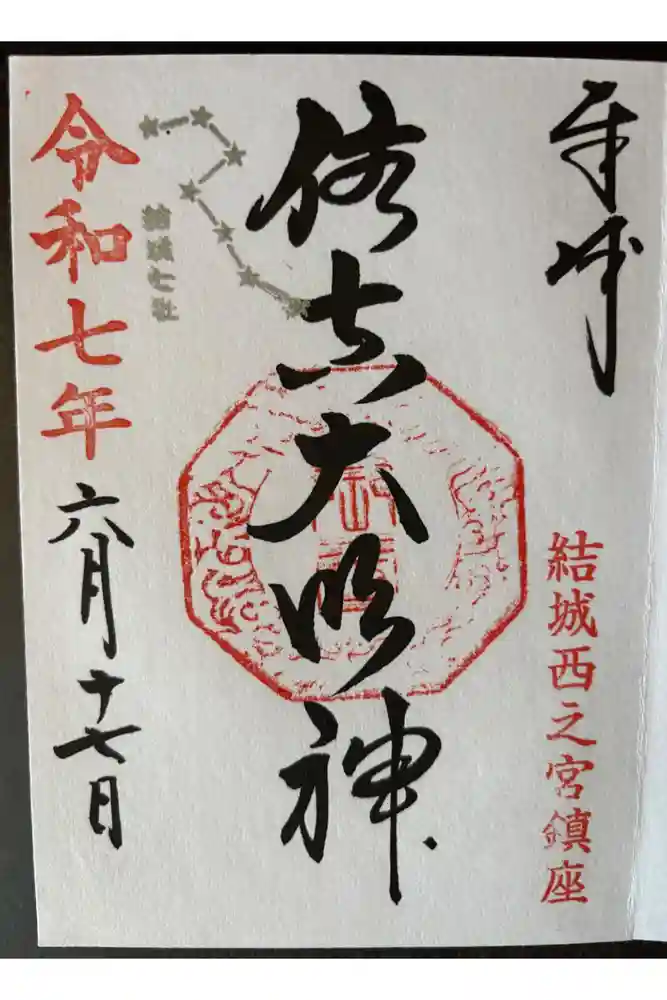 奉拝
結城西之宮鎮座
大明神
結城七社
令和七年
六月十七日